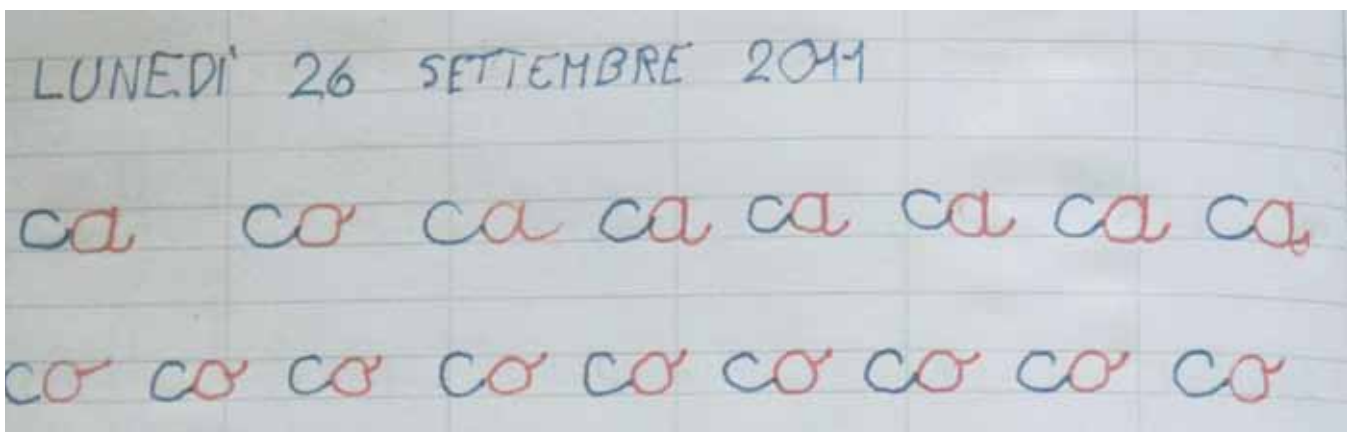 LUNEDI' 26 SETTEMBRE 2011
ca co ca ca ca ca ca ca
co co co co co co co co co